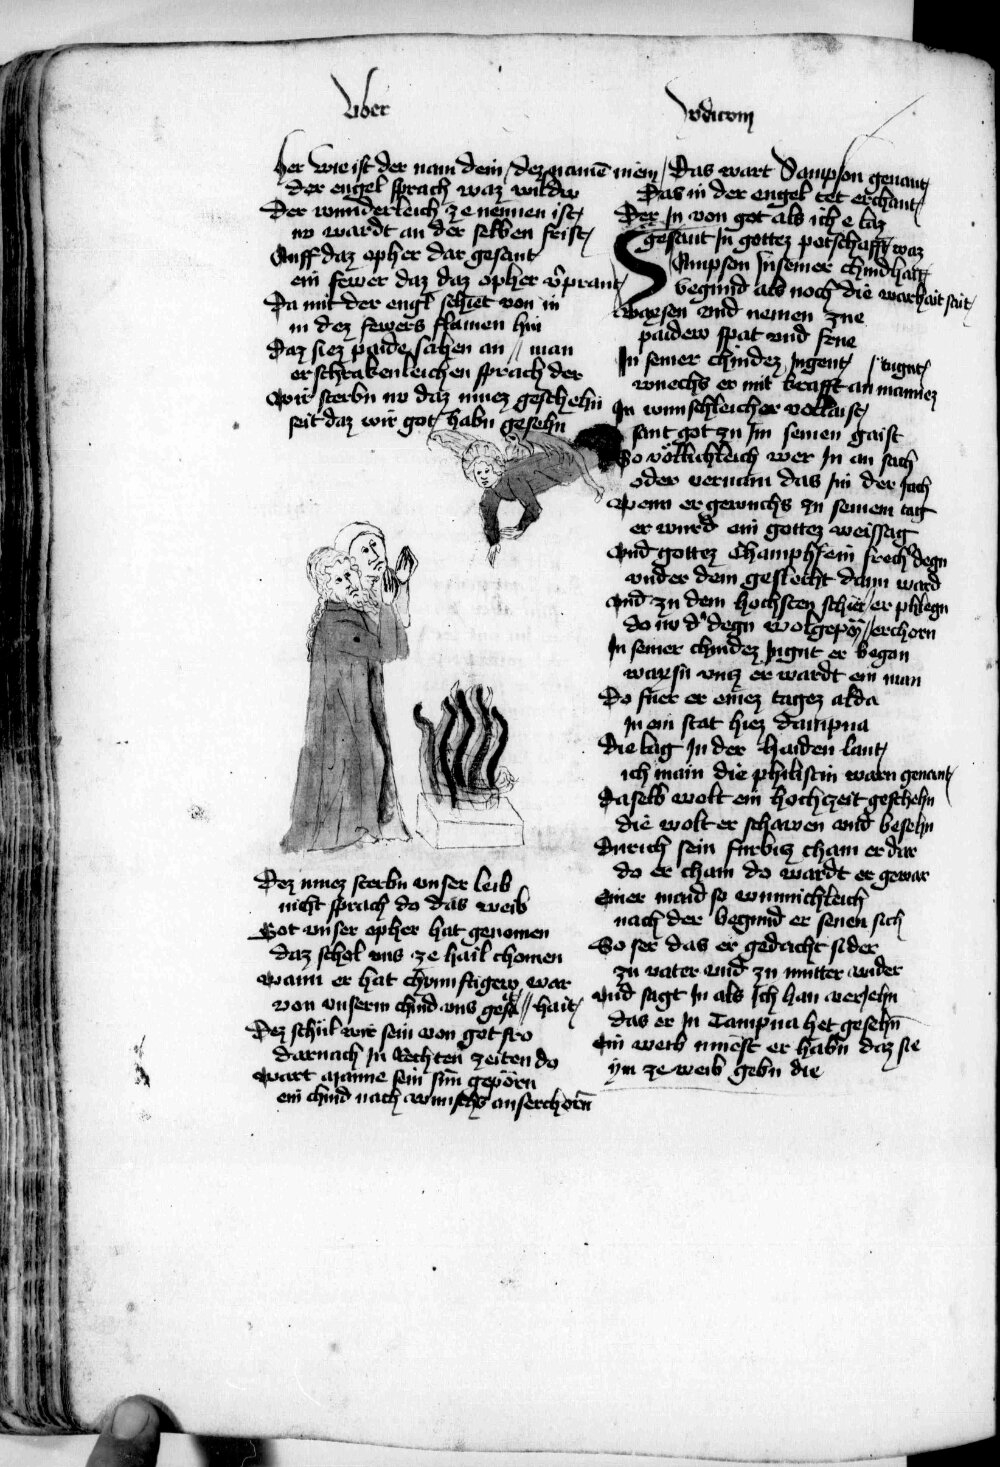 Liber
Judicum
her wie ist der nam dein / dez namē mein /
der engel sprach waz wildw
Der wunderleich ze nennen ist /
nv wardt an der selben frist /
Auff daz opher dar gesant
ein fewer daz daz opher v̈prant /
Da mit der engl schiet von in
in dez fewers flamen hin
Daz siez paide sahen an // man
erschrakenleichen sprach der
Wir sterbn nv daz muez geschehn
seit daz wir got habn gesehn
Dez muez sterbn vnser leib
nicht sprach do das weib
Got vnser opher hat genomen
daz schol vns ze hail chomen
wann er hat chvnftigew war
von vnserm chind vns gesä // hait /
Dez schül wir sein von got fro
darnach in Rechten zeiten do
wart Manne sein sun geporn
ein chind nach wunsch auserchorn̄
Das wart Sampson genant /
Das in der engel tet erchant /
Der In von got als ich e laz
gesant In gottez potschafft waz
SAmpson In seiner chindhait
begund als noch die warhait sait /
waxsen vnd nemen zue
paidew spat vnd frue
In seiner chindez Jugent / tugent /
wuechs er mit krafft an mannez
In wunschleicher vollaist /
sant got zu Im seinen gaist
So völlichleich wer In an sach
oder vernam das Im der Jach
wenn er gewuchs zu seinem tag
er wurd ein gottez weissag
vnd gottez Champhf ein frech degn
vnder dem geslecht dann ward
vnd zu dem hochsten schier / er phlegn
do nv d' degn wolgepor̄ // erchorn
In seiner chindez Jugnt er began
waxsn vncz er wardt ein man
Do fuer er einez tagez alda
In ein stat hiez Tampna
Die lag In der haiden lant /
ich main die philistin warn genant /
Daselb wolt ein hochczeit geschehn
die wolt er schawen vnd besehn
Durich sein furbicz cham er dar
do er cham do wardt er gewar
Einer maid so wunnichleich
nach der begund er senen sich
So ser das er gedacht sider
zu vater vnd zu mutter wider
vnd sagt In als Ich han veriehn
das er In Tampna het gesehn̄
Ein weib muest er habn daz sie
ym ze weib gebn die